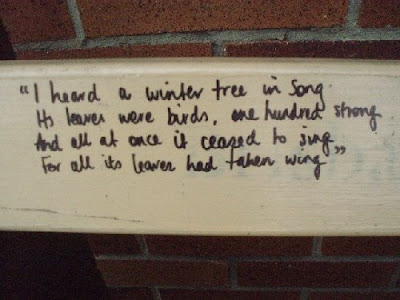 "I heard a winter tree in song
Its leaves were birds, one hundred strong
And all at once it ceased to sing
For all its leaves had taken wing"